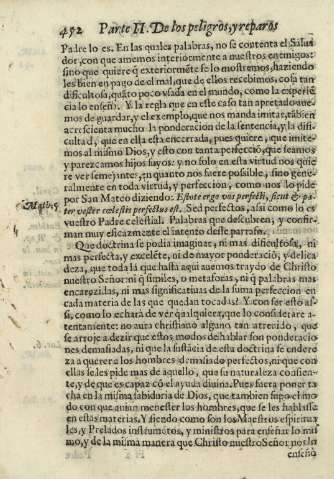 452 Parte II. De los peligros, y reparos
Padre lo es. En las quales palabras, no se contenta el Salua-
dor, con que amemos interiormente a nuestros enemigos:
sino que quiere q̃ exteriormẽte se lo mostremos, haziendo
les bien en pago de el mal, que de ellos recebimos, cosa tan
dificultosa, quãto poco vsada en el mundo, como la experiẽ
cia lo enseña. Y la regla que en este caso tan apretado aue-
mos de guardar, y el exemplo, que nos manda imitar, tãbien
acrescienta mucho la ponderacion de la sentencia, y la difi-
cultad, que en ella esta encerrada, pues quiere, que imite-
mos al mismo Dios, y esto con tanta perfecciõ, que seamos
y parezcamos hijos suyos: y no solo en esta virtud nos quie
re ver semejantes, en quanto nos fuere possible, sino gene-
ralmente en toda virtud, y perfeccion, como nos lo pide
Math. 5 por San Mateo diziendo: Estote ergo vos perfecti, sicut & pa-
ter vester cœlestis perfectus est. Sed perfectos, assi como lo es
vuestro Padre celestial. Palabras que descubren, y confir-
man muy eficazmente el intento deste parrafo.
Que doctrina se podia imaginar, ni mas dificultosa, ni
mas perfecta, y excelẽte, ni de mayor ponderaciõ, y delica
deza, que toda la que hasta aqui auemos traydo de Christo
nuestro Señor? ni q̃ similes, o metaforas, ni q̃ palabras mas
encarecidas, ni mas significatiuas de la suma perfeccion en
cada materia de las que quedan tocadas? Y con ser esto as-
si, como lo echarà de ver qualquiera, que lo considerare a-
tentamente: no aura christiano alguno tan atreuido, que
se arroje a dezir que estos modos de hablar son ponderacio
nes demasiadas, ni que la sustãcia de esta doctrina se endere
za a querer a los hombres demasiado perfectos, ni que con
ellas se les pide mas de aquello, que su naturaleza consien-
te, y de que es capaz cõ el ayuda diuina. Pues fuera poner ta
cha en la misma sabiduria de Dios, que tambien supo el mo
do con que auian menester los hombres, que se les hablasse
en estas materias. Y siendo como son los Maestros espiritua
les, y Prelados instrumẽtos, y ministros para enseñar lo mis
mo, y de la misma manera que Christo nuestro Señor nos lo
enseñó